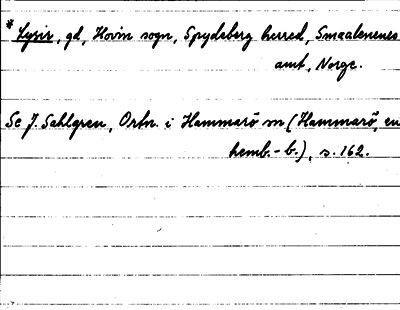 * Lysir, gd, Hovin sogn, Spydeberg herred, Smaalenenes
amt, Norge.
Se J. Sahlgren, Ortn. i Hammarö sn (Hammarö, en
hemb.-b.), s. 162.